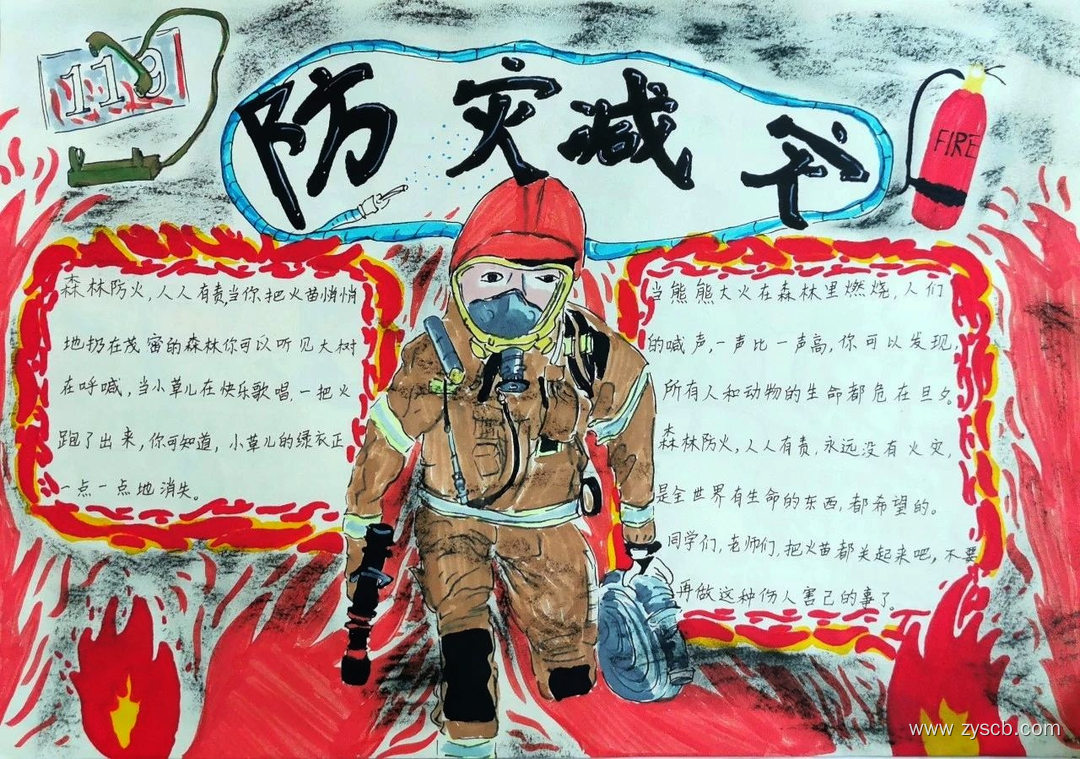 119
防灾减
FIRE
森林防火,人人有责当你把火苗悄悄
地扔在茂密的森林你可以听见大树
在呼喊,当小草儿在快乐歌唱,一把火
跑了出来,你可知道,小草儿的绿衣正
一点一点地消失。
当熊熊大火在森林里燃烧,人们
的喊声,一声比一声高,你可以发现,
所有人和动物的生命都危在旦夕。
森林防火,人人有责,永远没有火灾,
是全世界有生命的东西,都希望的。
同学们,老师们,把火苗都关起来吧,不要
再做这种伤人害己的事了。
www.zyscb.com